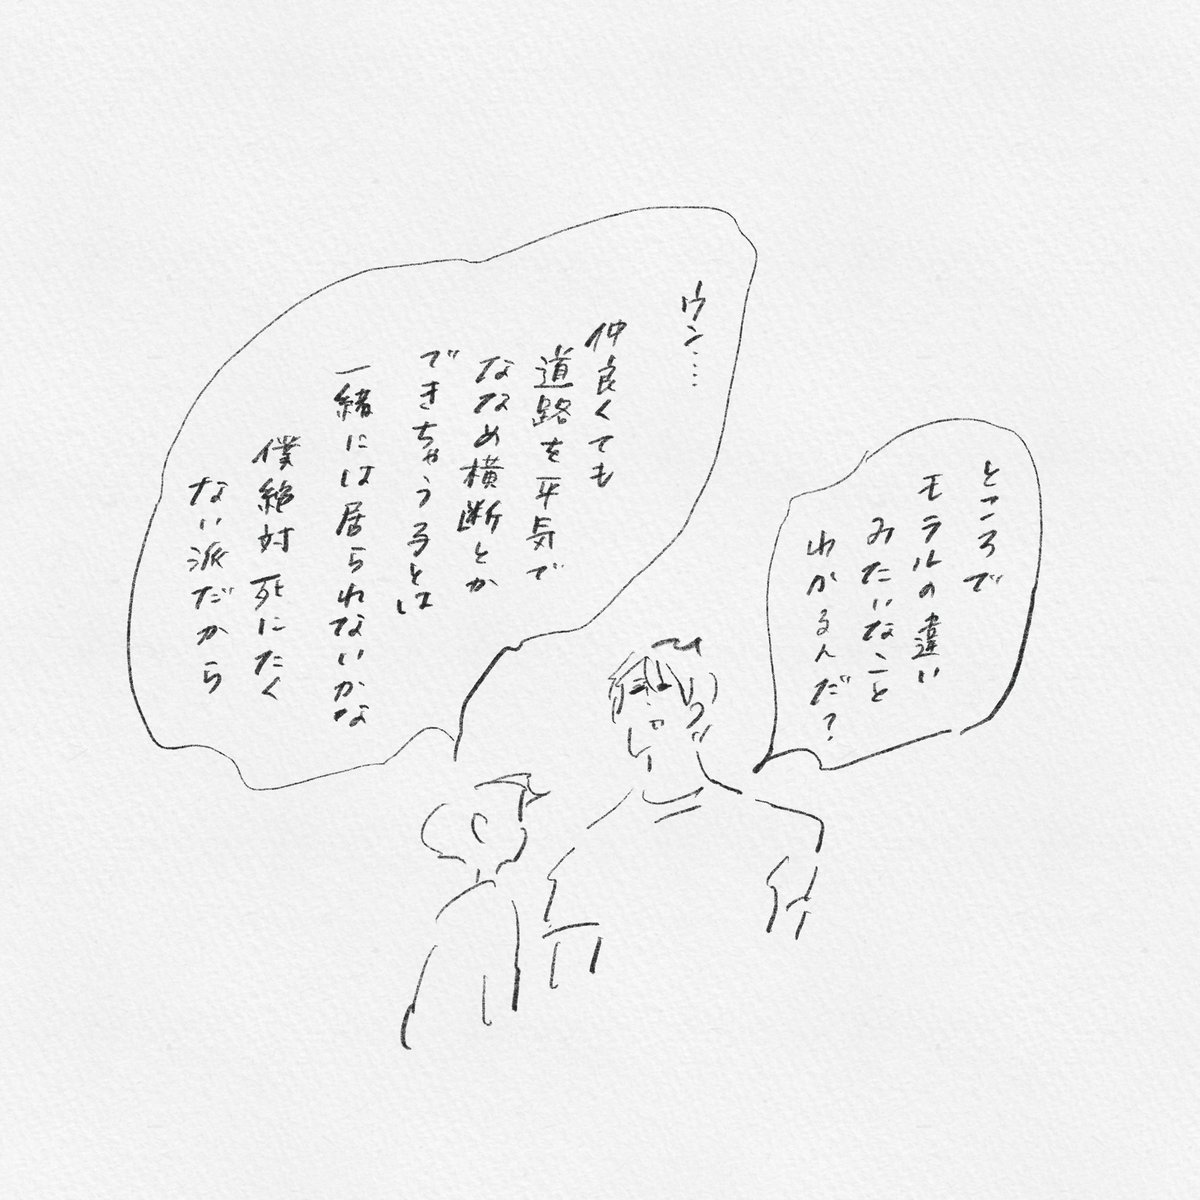 ところで
モラルの違い
みたいなこと
わかるんだ？
ウン….
仲良くても
道路を平気で
ななめ横断とか
できちゃう子とは
一緒には居られないかな
僕絶対死にたく
ない派だから